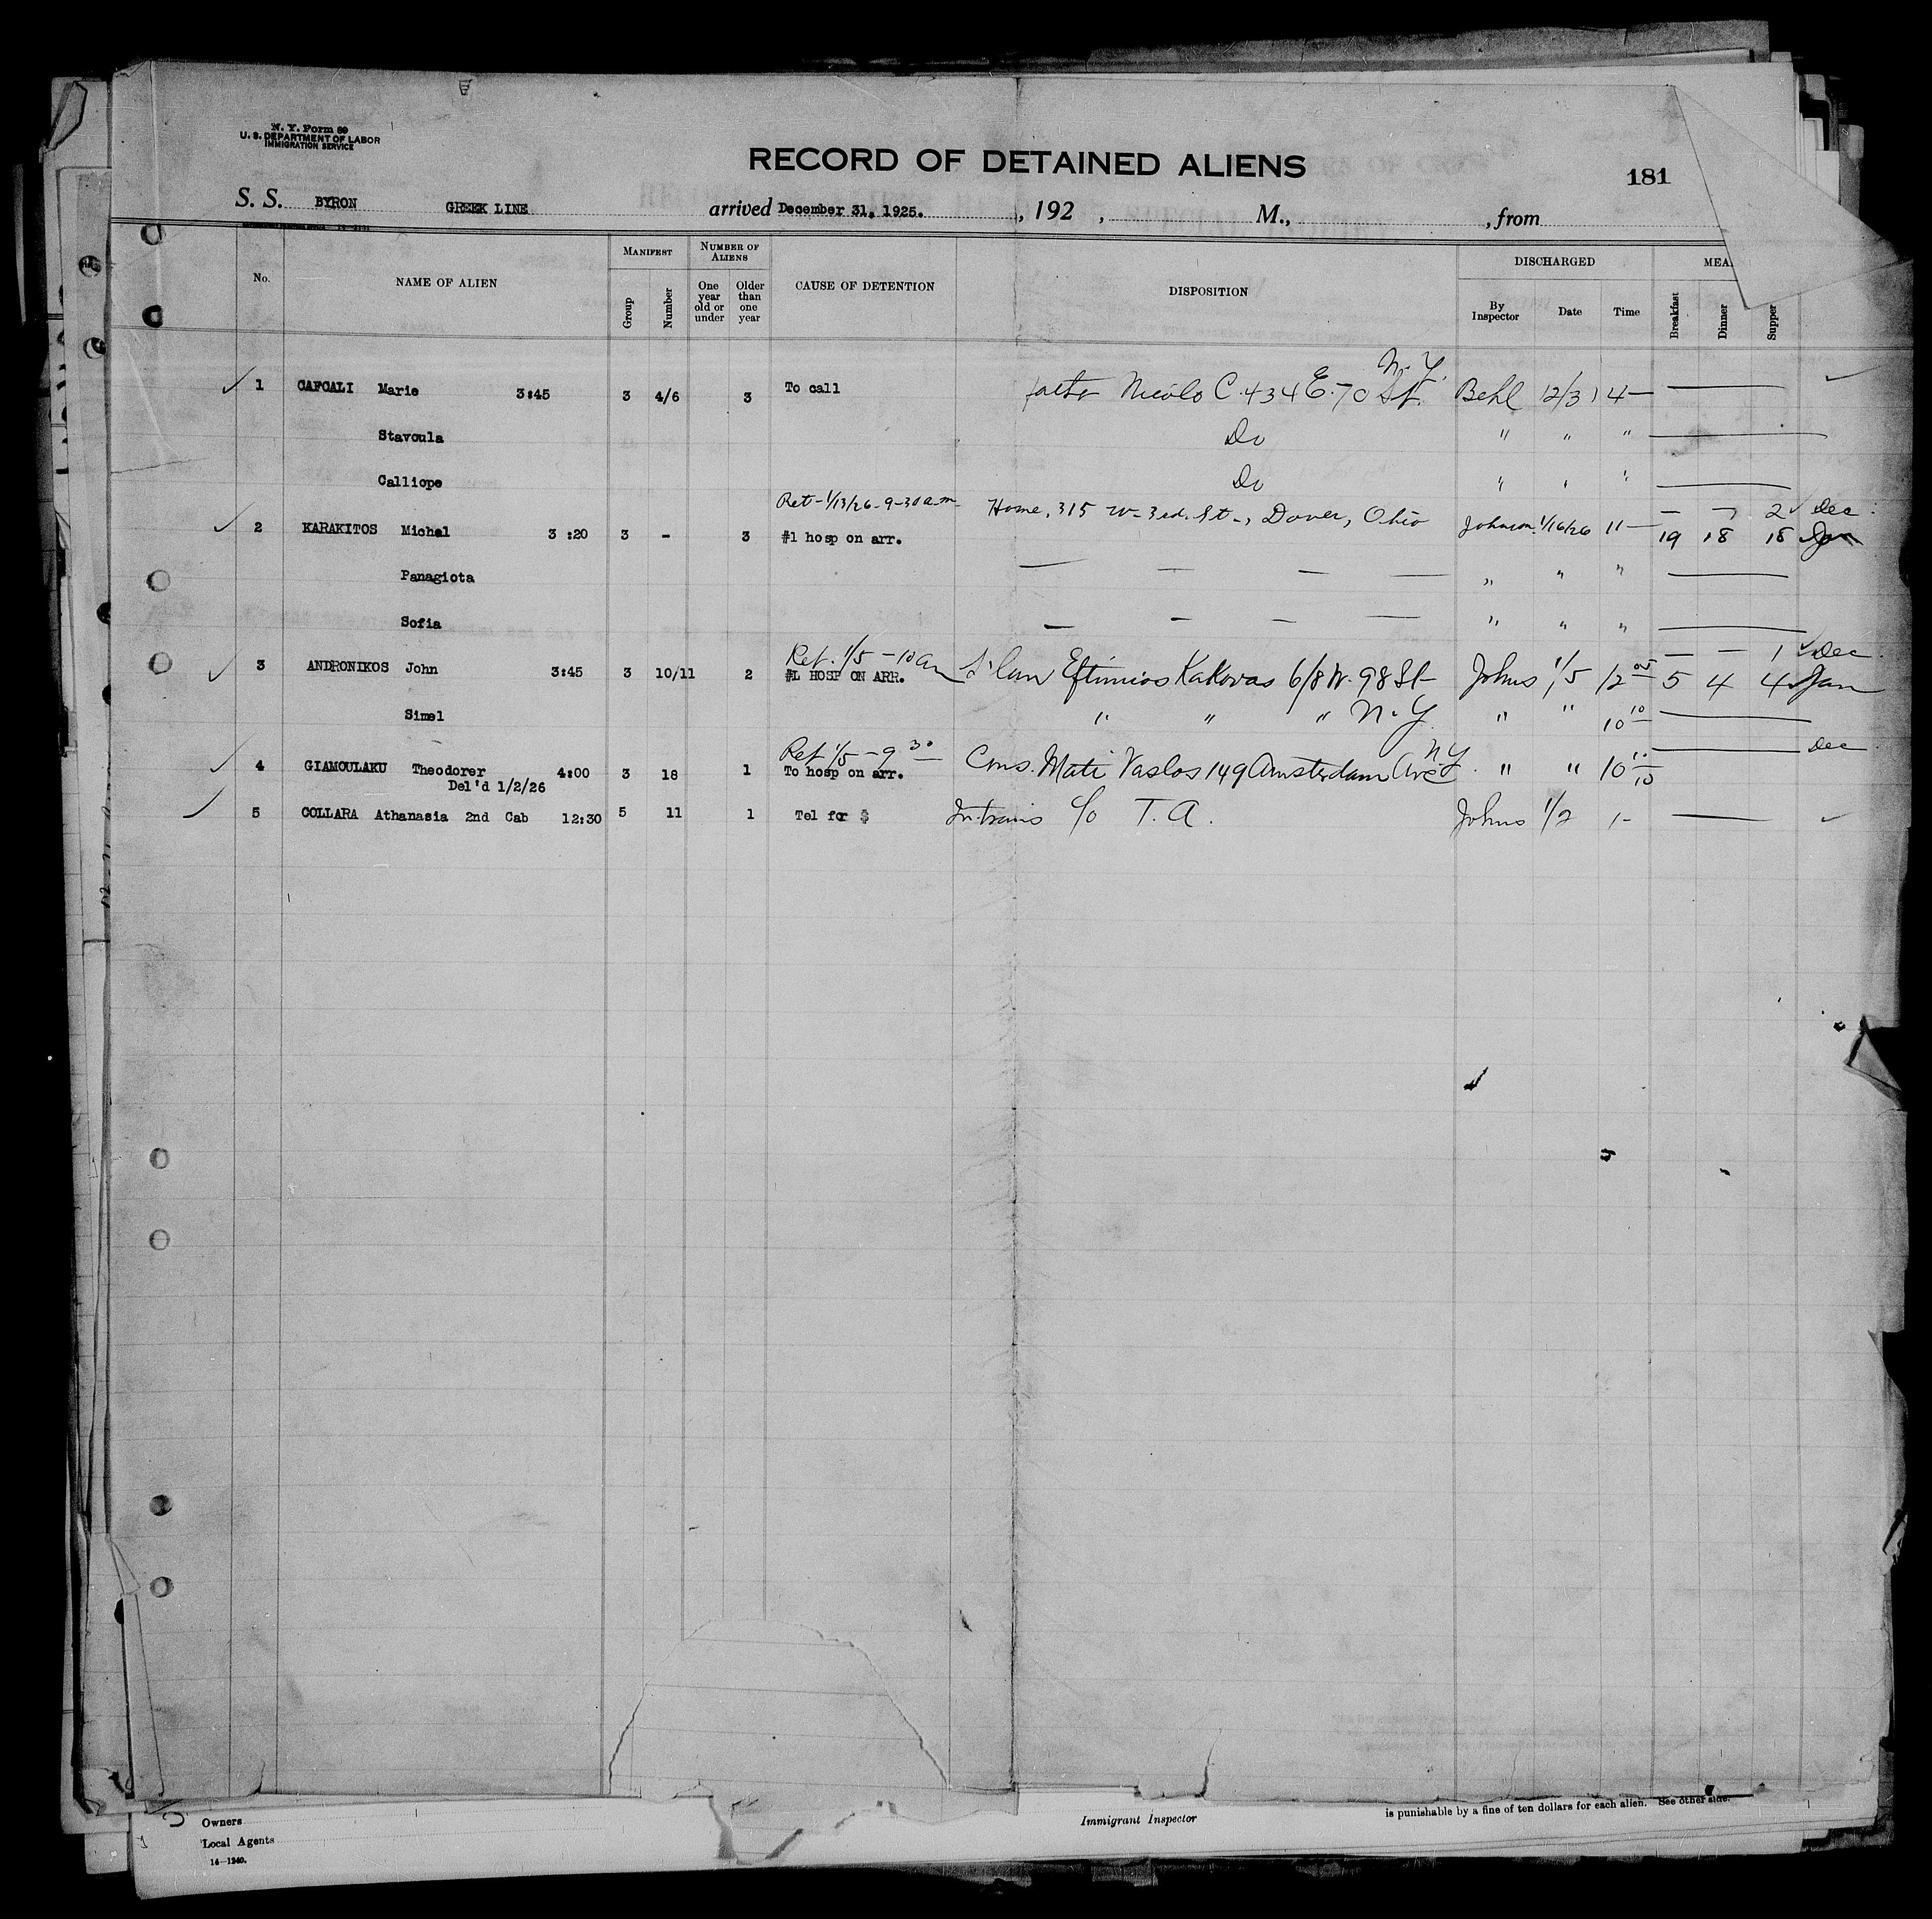 N. Y. Form 89
U. S. DEPARTMENT OF LABOR
IMMIGRATION SERVICE
RECORD OF DETAINED ALIENS
181
S. S. BYRON GREEK LINE arrived December 31, 1925. , 192 , M., , from
No. NAME OF ALIEN MANIFEST Group Number NUMBER OF ALIENS One year old or under Older than one year CAUSE OF DETENTION DISPOSITION DISCHARGED By Inspector Date Time MEA Breakfast Dinner Supper
N.Y.
1 CAFCALI Marie 3:45 3 4/6 3 To call Nicolo C. 434 E. 70 St. Behl 12/31 4—
Stavoula Do " " "
Calliope Do " " "
Ret - 1/13/26 - 9-30 a.m. Home, 315 W - 3rd. St., Dover, Ohio — — 2 ✓ Dec.
2 KARAKITOS Michal 3 :20 3 - 3 #1 hosp on arr. Johnson 1/16/26 11— 19 18 18 Jan
Panagiota — — — — " " "
Sofia — — — — " " "
Ret. 1/5 - 10 am — — 1 ✓ Dec.
3 ANDRONIKOS John 3:45 3 10/11 2 #L HOSP ON ARR. Eftimios Kakovas 6/8 W. 98 St Johns 1/5 12 05 5 4 4 Jan
Simel " " " N.Y. " " 10 10
Ret 1/5 - 9 30 N.Y. Dec
4 GIAMOULAKU Theodorer 4:00 3 18 1 To hosp on arr. Cous. Mati Vaslos 149 Amsterdam Ave " " 10 10
Del'd 1/2/26
5 COLLARA Athanasia 2nd Cab 12:30 5 11 1 Tel for $ In trans c/o T. A. Johns 1/2 1-
Owners
Local Agents
14—1240.
Immigrant Inspector
is punishable by a fine of ten dollars for each alien. See other side.